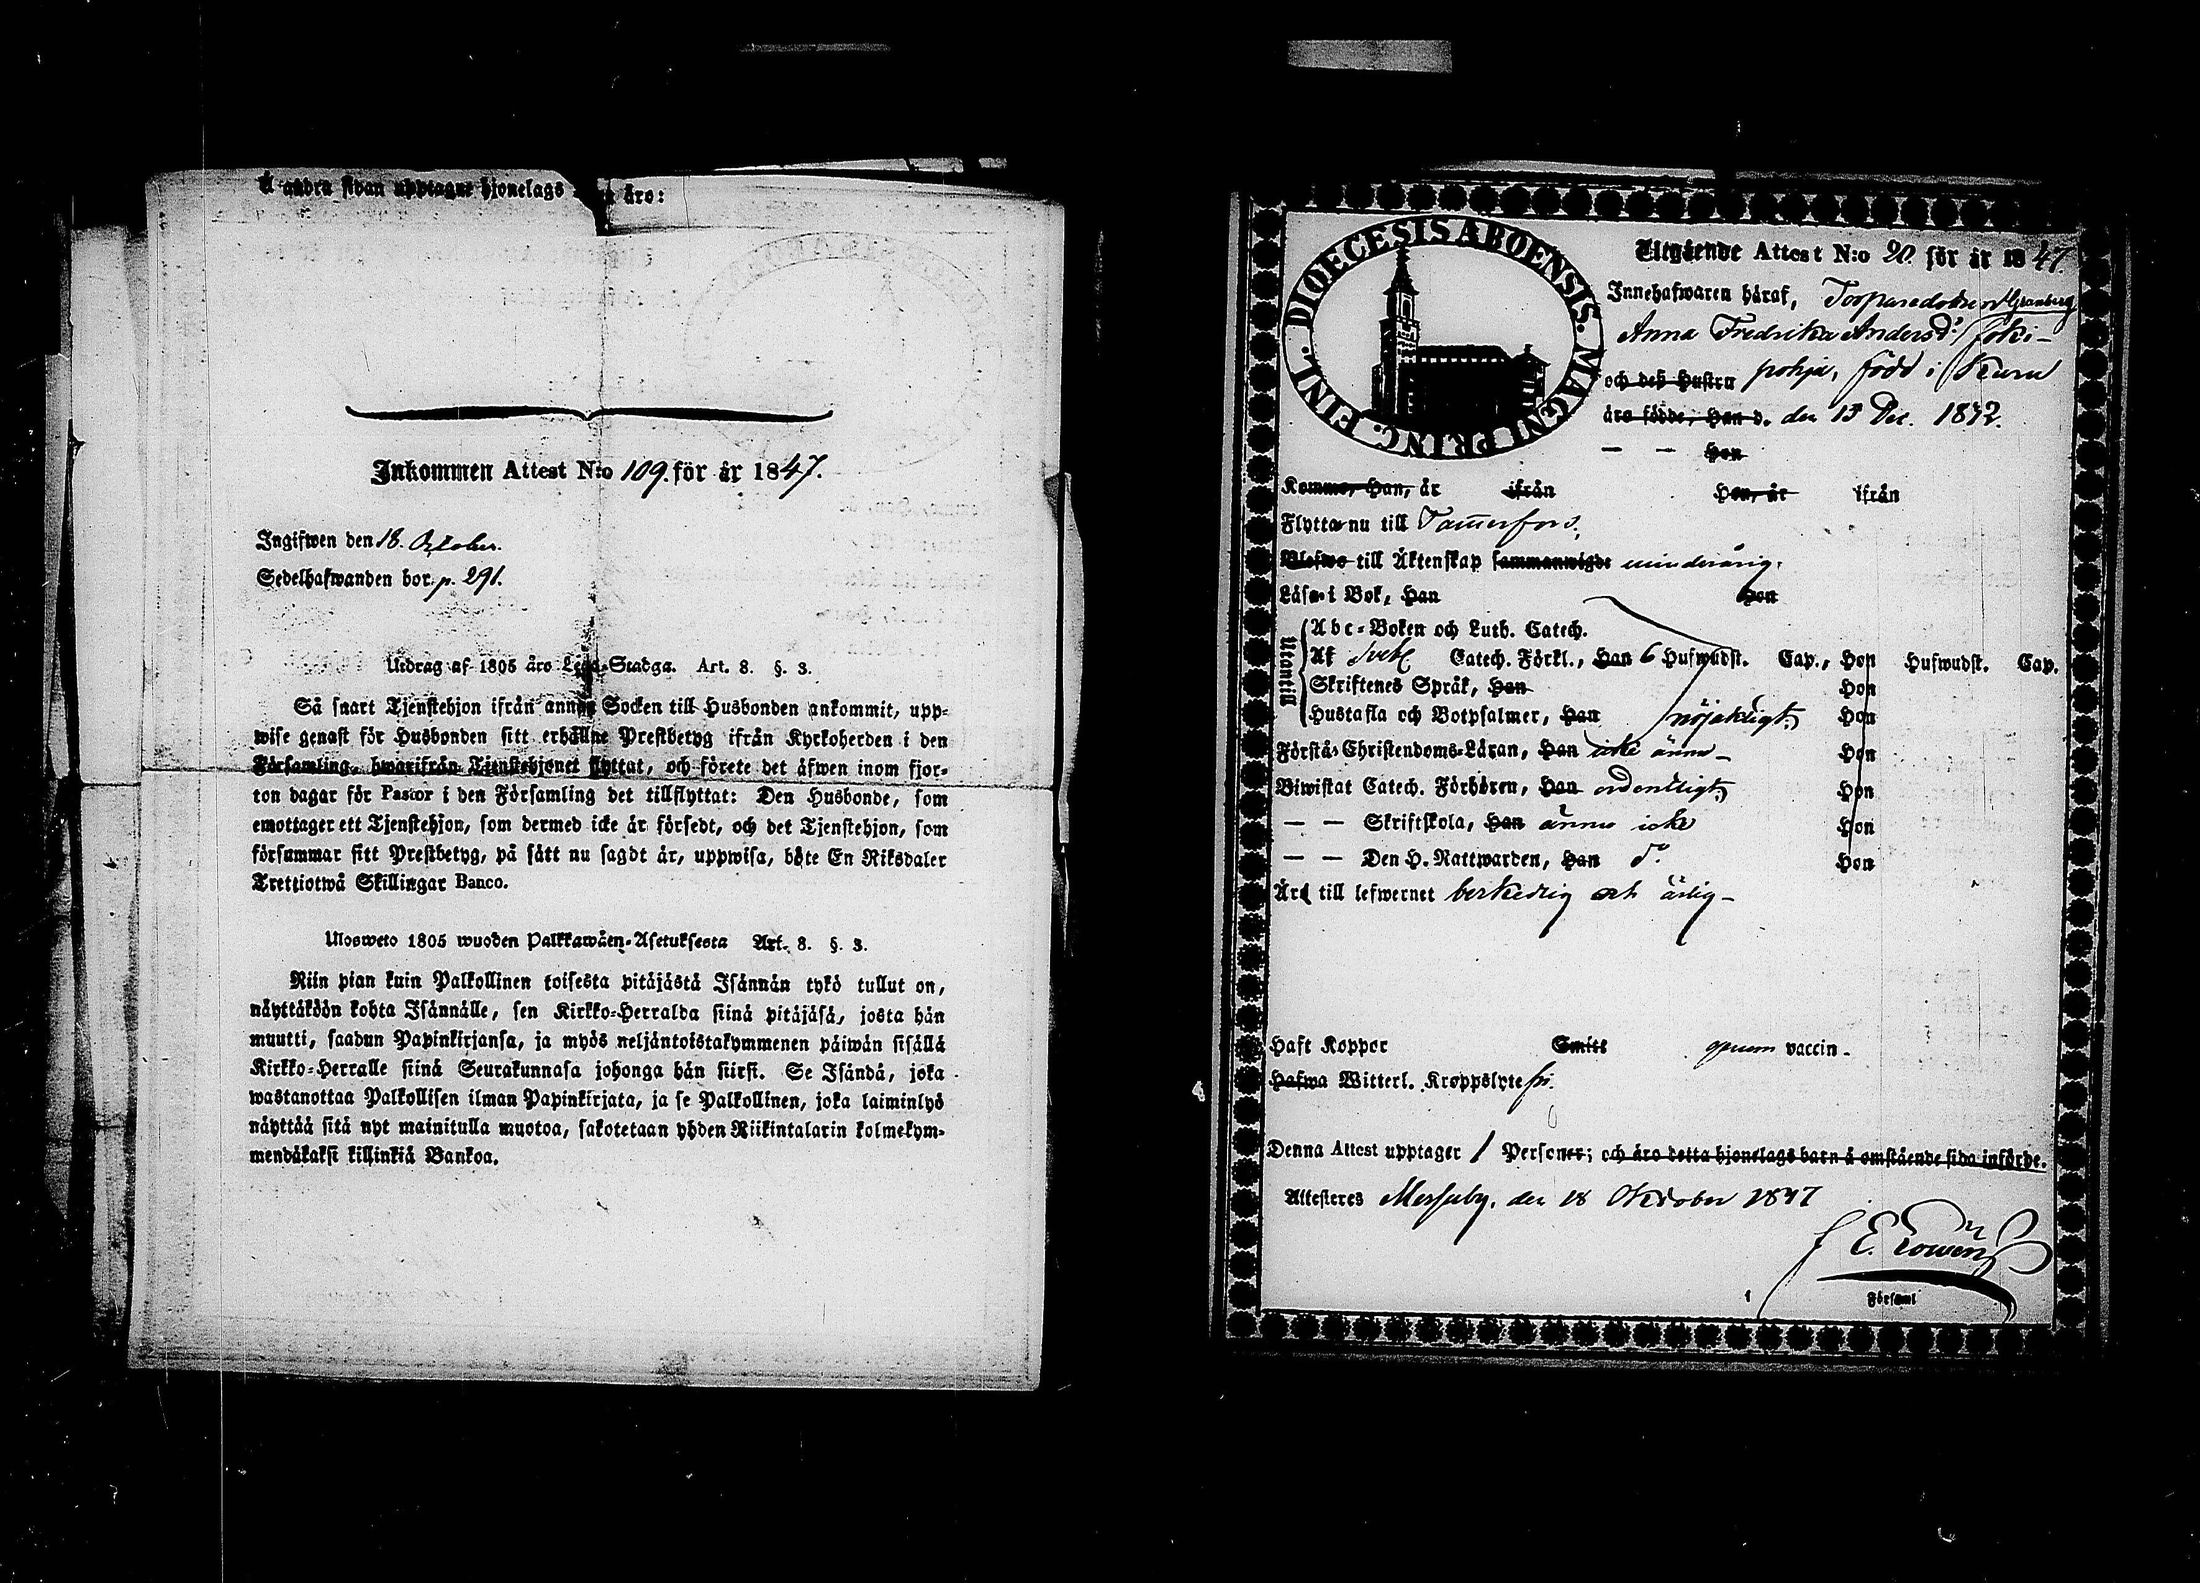 Å andra sidan upptagne hjonelags äro:
Inkommen Attest N:o 109. för år 1847.
Ingifwen den 18. October.
Sedelhafwanden bor p. 291.
Utdrag af 1805 års Lego-Stadga. Art. 8. §. 3.
Så snart Tjenstehjon ifrån annan Socken till Husbonden ankommit, upp-
wise genast för Husbonden sitt erhållne Prestbetyg ifrån Kyrkoherden i den
Församling, hwarifrån Tjenstehjonet flyttat, och förete det äfwen inom fjor-
ton dagar för Pastor i den Församling det tillflyttat: Den Husbonde, som
emottager ett Tjenstehjon, som dermed icke är försedt, och det Tjenstehjon, som
försummar sitt Prestbetyg, på sätt nu sagdt är, uppwisa, böte En Riksdaler
Trettiotwå Skillingar Banco.
Ulosweto 1805 wuoden Palkkawäen-Asetuksesta Art. 8. §. 3.
Niin pian kuin Palkollinen toisesta pitäjästä Isännän tykö tullut on,
näyttäköön kohta Isännälle, sen Kirkko-Herralda siinä pitäjäsä, josta hän
muutti, saadun Papinkirjansa, ja myös neljäntoistakymmenen päiwän sisällä
Kirkko-Herralle siinä Seurakunnasa johonga hän siirsi. Se Isändä, joka
wastanottaa Palkollisen ilman Papinkirjata, ja se Palkollinen, joka laiminlyö
näyttää sitä nyt mainitulla muotoa, sakotetaan yhden Riikintalarin kolmekym-
mendäkaksi killinkiä Bankoa.
DIOECESIS ABOENSIS. MAGNI PRINC. FINL.
Utgående Attest N:o 20. för år 1847.
Innehafwaren häraf, Torparedottren Granberg
Anna Fredrika Andersdr
och deß Hustru pohja, född i Kuru
äro födde, Han d. den 13 Dec. 1832.
— — Hon
Kommo, Han, år ifrån Hon, år ifrån
Flytta nu till Tammerfors.
Blefwo till Äktenskap sammanwigde minderårig.
Läsa i Bok, Han Hon
Utantill
Abc-Boken och Luth. Catech.
Af Sveb. Catech. Förkl., Han 6 Hufwudst. Cap., Hon Hufwudst. Cap.
Skriftenes Språk, Han Hon
Hustafla och Botpsalmer, Han nöjaktigt, Hon
Förstå Christendoms-Läran, Han icke ännu — Hon
Biwistat Catech. Förhören, Han ordentligt, Hon
— — Skriftskola, Han ännu icke Hon
— — Den H. Nattwarden, Han do Hon
Äro till lefwernet beskedlig och ärlig —
Haft Koppor Smitt genom vaccin.
Hafwa Witterl. Kroppslyte fri.
Denna Attest upptager 1 Personer; och äro detta hjonelags barn å omstående sida införde.
Attesteres Messuby, den 18 October 1847
Församl